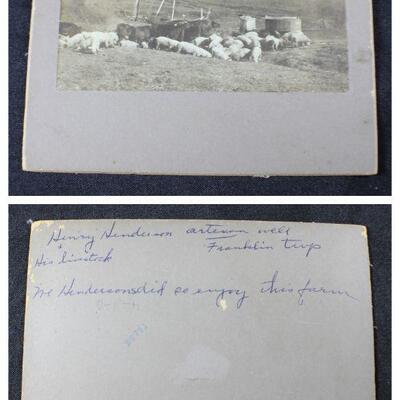 Henry Henderson artesan well
+ Franklin twp
His livestock
We Hendersons did so enjoy this farm